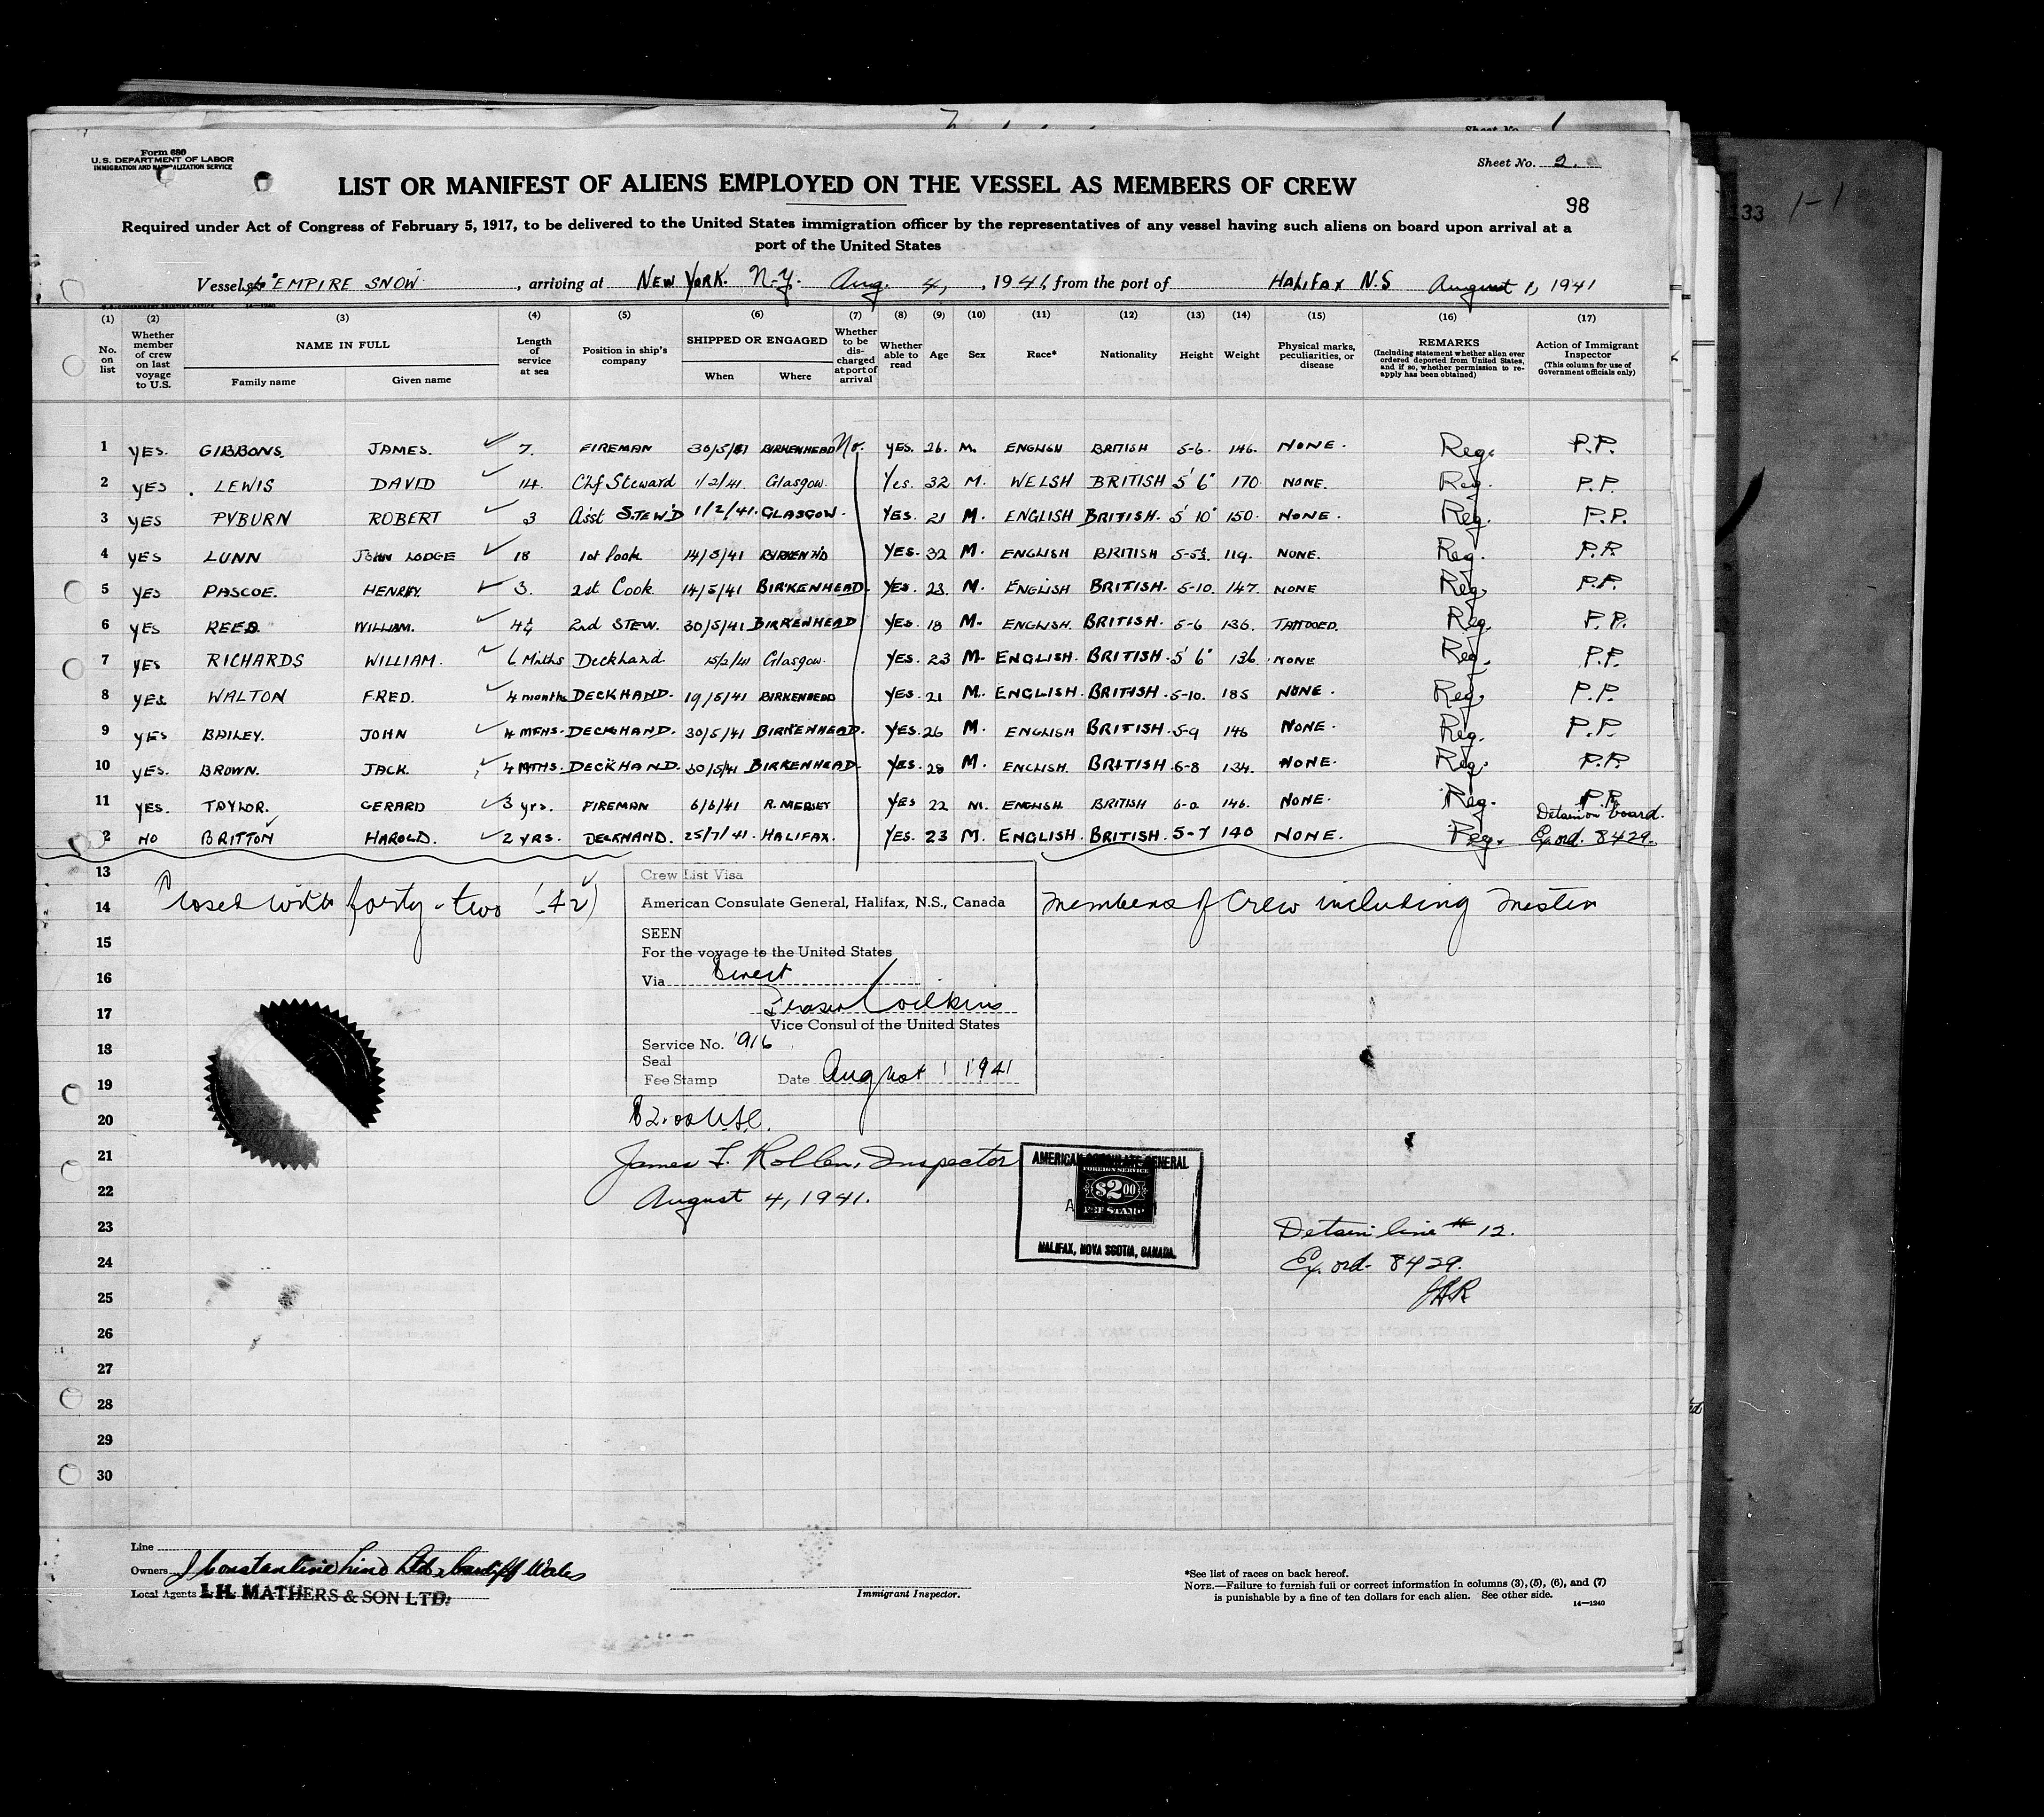 Sheet No. 1
Form 680
U.S. DEPARTMENT OF LABOR
IMMIGRATION AND NATURALIZATION SERVICE
Sheet No. 2.
LIST OR MANIFEST OF ALIENS EMPLOYED ON THE VESSEL AS MEMBERS OF CREW
98
33 1-1
Required under Act of Congress of February 5, 1917, to be delivered to the United States immigration officer by the representatives of any vessel having such aliens on board upon arrival at a
port of the United States
Vessel "EMPIRE SNOW", arriving at NEW YORK. N.Y. Aug. 4, , 1941, from the port of HALIFAX N.S August 1, 1941
(1) (2) (3) (4) (5) (6) (7) (8) (9) (10) (11) (12) (13) (14) (15) (16) (17)
No. on list Whether member of crew on last voyage to U.S. NAME IN FULL Family name Given name Length of service at sea Position in ship's company SHIPPED OR ENGAGED When Where Whether to be discharged at port of arrival Whether able to read Age Sex Race* Nationality Height Weight Physical marks, peculiarities, or disease REMARKS (Including statement whether alien ever ordered deported from United States, and if so, whether permission to re-apply has been obtained) Action of Immigrant Inspector (This column for use of Government officials only)
1 YES. GIBBONS. JAMES. 7. FIREMAN 30/5/41 BIRKENHEAD No. YES. 26. M. ENGLISH BRITISH 5-6. 146. NONE. Reg. P.P.
2 YES. LEWIS DAVID 14. Chf Steward 1/2/41. Glasgow. Yes. 32 M. WELSH BRITISH 5' 6" 170 NONE. Reg. P.P.
3 YES PYBURN ROBERT 3 Asst STEW'D 1/2/41. GLASGOW. YES. 21 M. ENGLISH BRITISH. 5' 10" 150. NONE. Reg. P.P.
4 YES LUNN JOHN LODGE 18 1st Cook 14/5/41 BIRKENH'D YES. 32 M. ENGLISH BRITISH 5-5½. 119. NONE. Reg. P.P.
5 YES PASCOE. HENRY. 3. 2st Cook 14/5/41 BIRKENHEAD. YES. 23. M. ENGLISH BRITISH. 5-10. 147. NONE Reg. P.P.
6 YES REED. WILLIAM. 4½ 2nd STEW. 30/5/41 BIRKENHEAD YES. 18 M. ENGLISH. BRITISH. 5-6 136. TATTOOED. Reg. P.P.
7 YES RICHARDS WILLIAM. 6 Mnths Deckhand 15/2/41 Glasgow. YES. 23 M. ENGLISH. BRITISH. 5' 6" 136. NONE Reg. P.P.
8 YES WALTON FRED. 4 months DECKHAND. 19/5/41 BIRKENHEAD YES. 21 M. ENGLISH. BRITISH. 5-10. 185 NONE. Reg. P.P.
9 YES BAILEY. JOHN 4 MTHS. DECKHAND. 30/5/41 BIRKENHEAD. YES. 26 M. ENGLISH BRITISH. 5-9 146 NONE. Reg. P.P.
10 YES. BROWN. JACK. 4 MTHS. DECKHAND. 30/5/41 BIRKENHEAD. YES. 28 M. ENGLISH. BRITISH. 5-8 134. NONE. Reg. P.P.
11 YES. TAYLOR. GERARD 3 yrs. FIREMAN 6/6/41 R. MERSEY YES 22 M. ENGLISH. BRITISH 6-0. 146. NONE. Reg. P.P.
Detain on board.
12 NO BRITTON HAROLD. 2 YRS. DECKHAND. 25/7/41. HALIFAX. YES. 23 M. ENGLISH. BRITISH. 5-7 140 NONE. Reg. Ex. ord. 8429.
13
14 Closed with forty-two (42) members of Crew including Master
15
16
17
18
19
20
21
22
23
24
25
26
27
28
29
30
Crew List Visa
American Consulate General, Halifax, N.S., Canada
SEEN
For the voyage to the United States
Via Direct
Fraser Wilkins
Vice Consul of the United States
Service No. 916
Seal
Fee Stamp Date August 1 1941
$2.00 U.S.C.
James F. Rollen, Inspector
August 4, 1941.
AMERICAN CONSULATE GENERAL
FOREIGN SERVICE
$2.00
FEE STAMP
HALIFAX, NOVA SCOTIA, CANADA.
Detain line # 12.
Ex. ord. 8429.
JFR
Line
Owners J Constantine Line Ltd, Cardiff Wales
Local Agents I.H. MATHERS & SON LTD.
Immigrant Inspector.
*See list of races on back hereof.
NOTE.—Failure to furnish full or correct information in columns (3), (5), (6), and (7)
is punishable by a fine of ten dollars for each alien. See other side.
14—1240